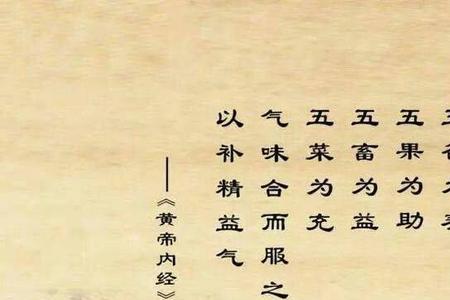 五果为助
五畜为益
五菜为充
气味合而服之
以补精益气
——《黄帝内经》